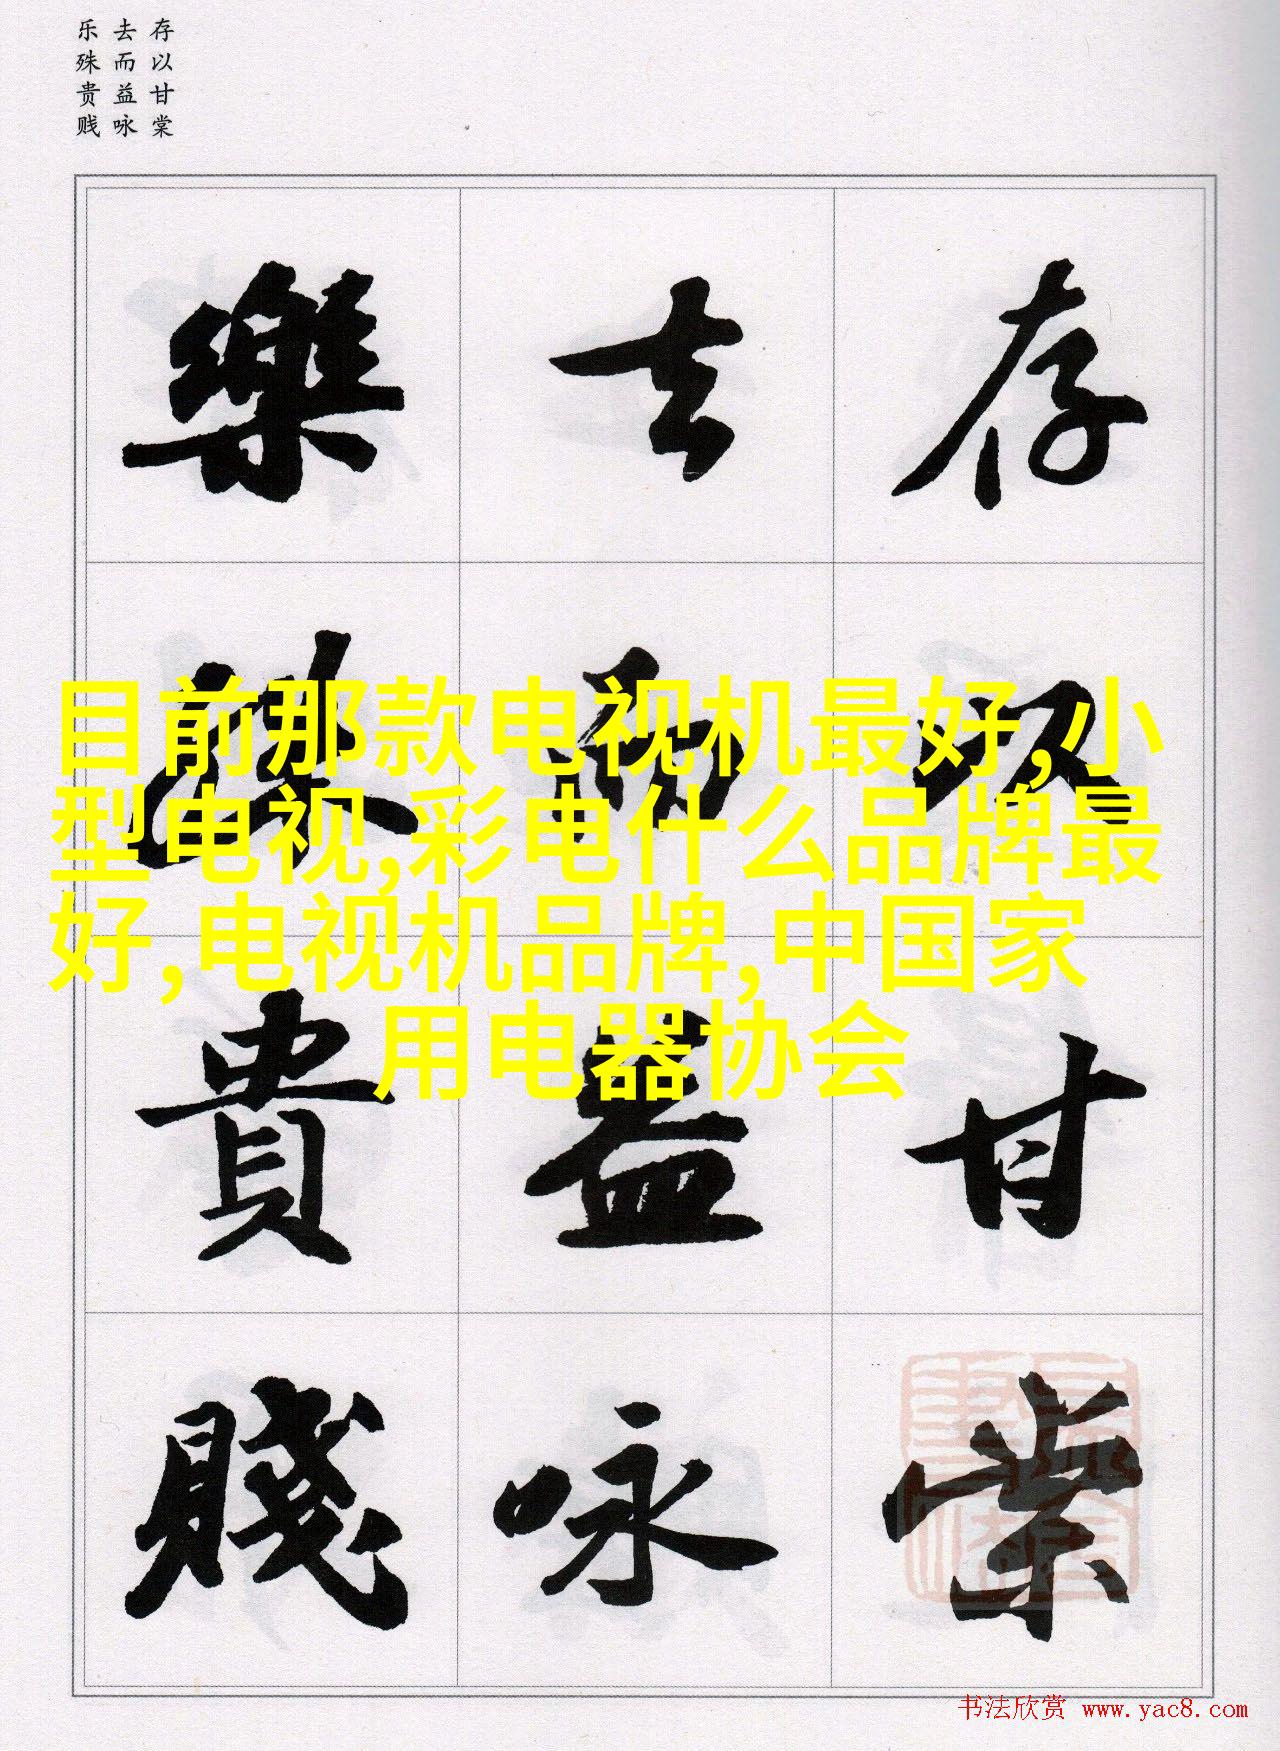 存以甘棠
去而益咏
乐殊贵贱
存以甘棠
去而益咏
樂殊貴賤
目前那款电视机最好,小
型电视,彩电什么品牌最
好,电视机品牌,中国家
用电器协会
书法欣赏 www.yac8.com